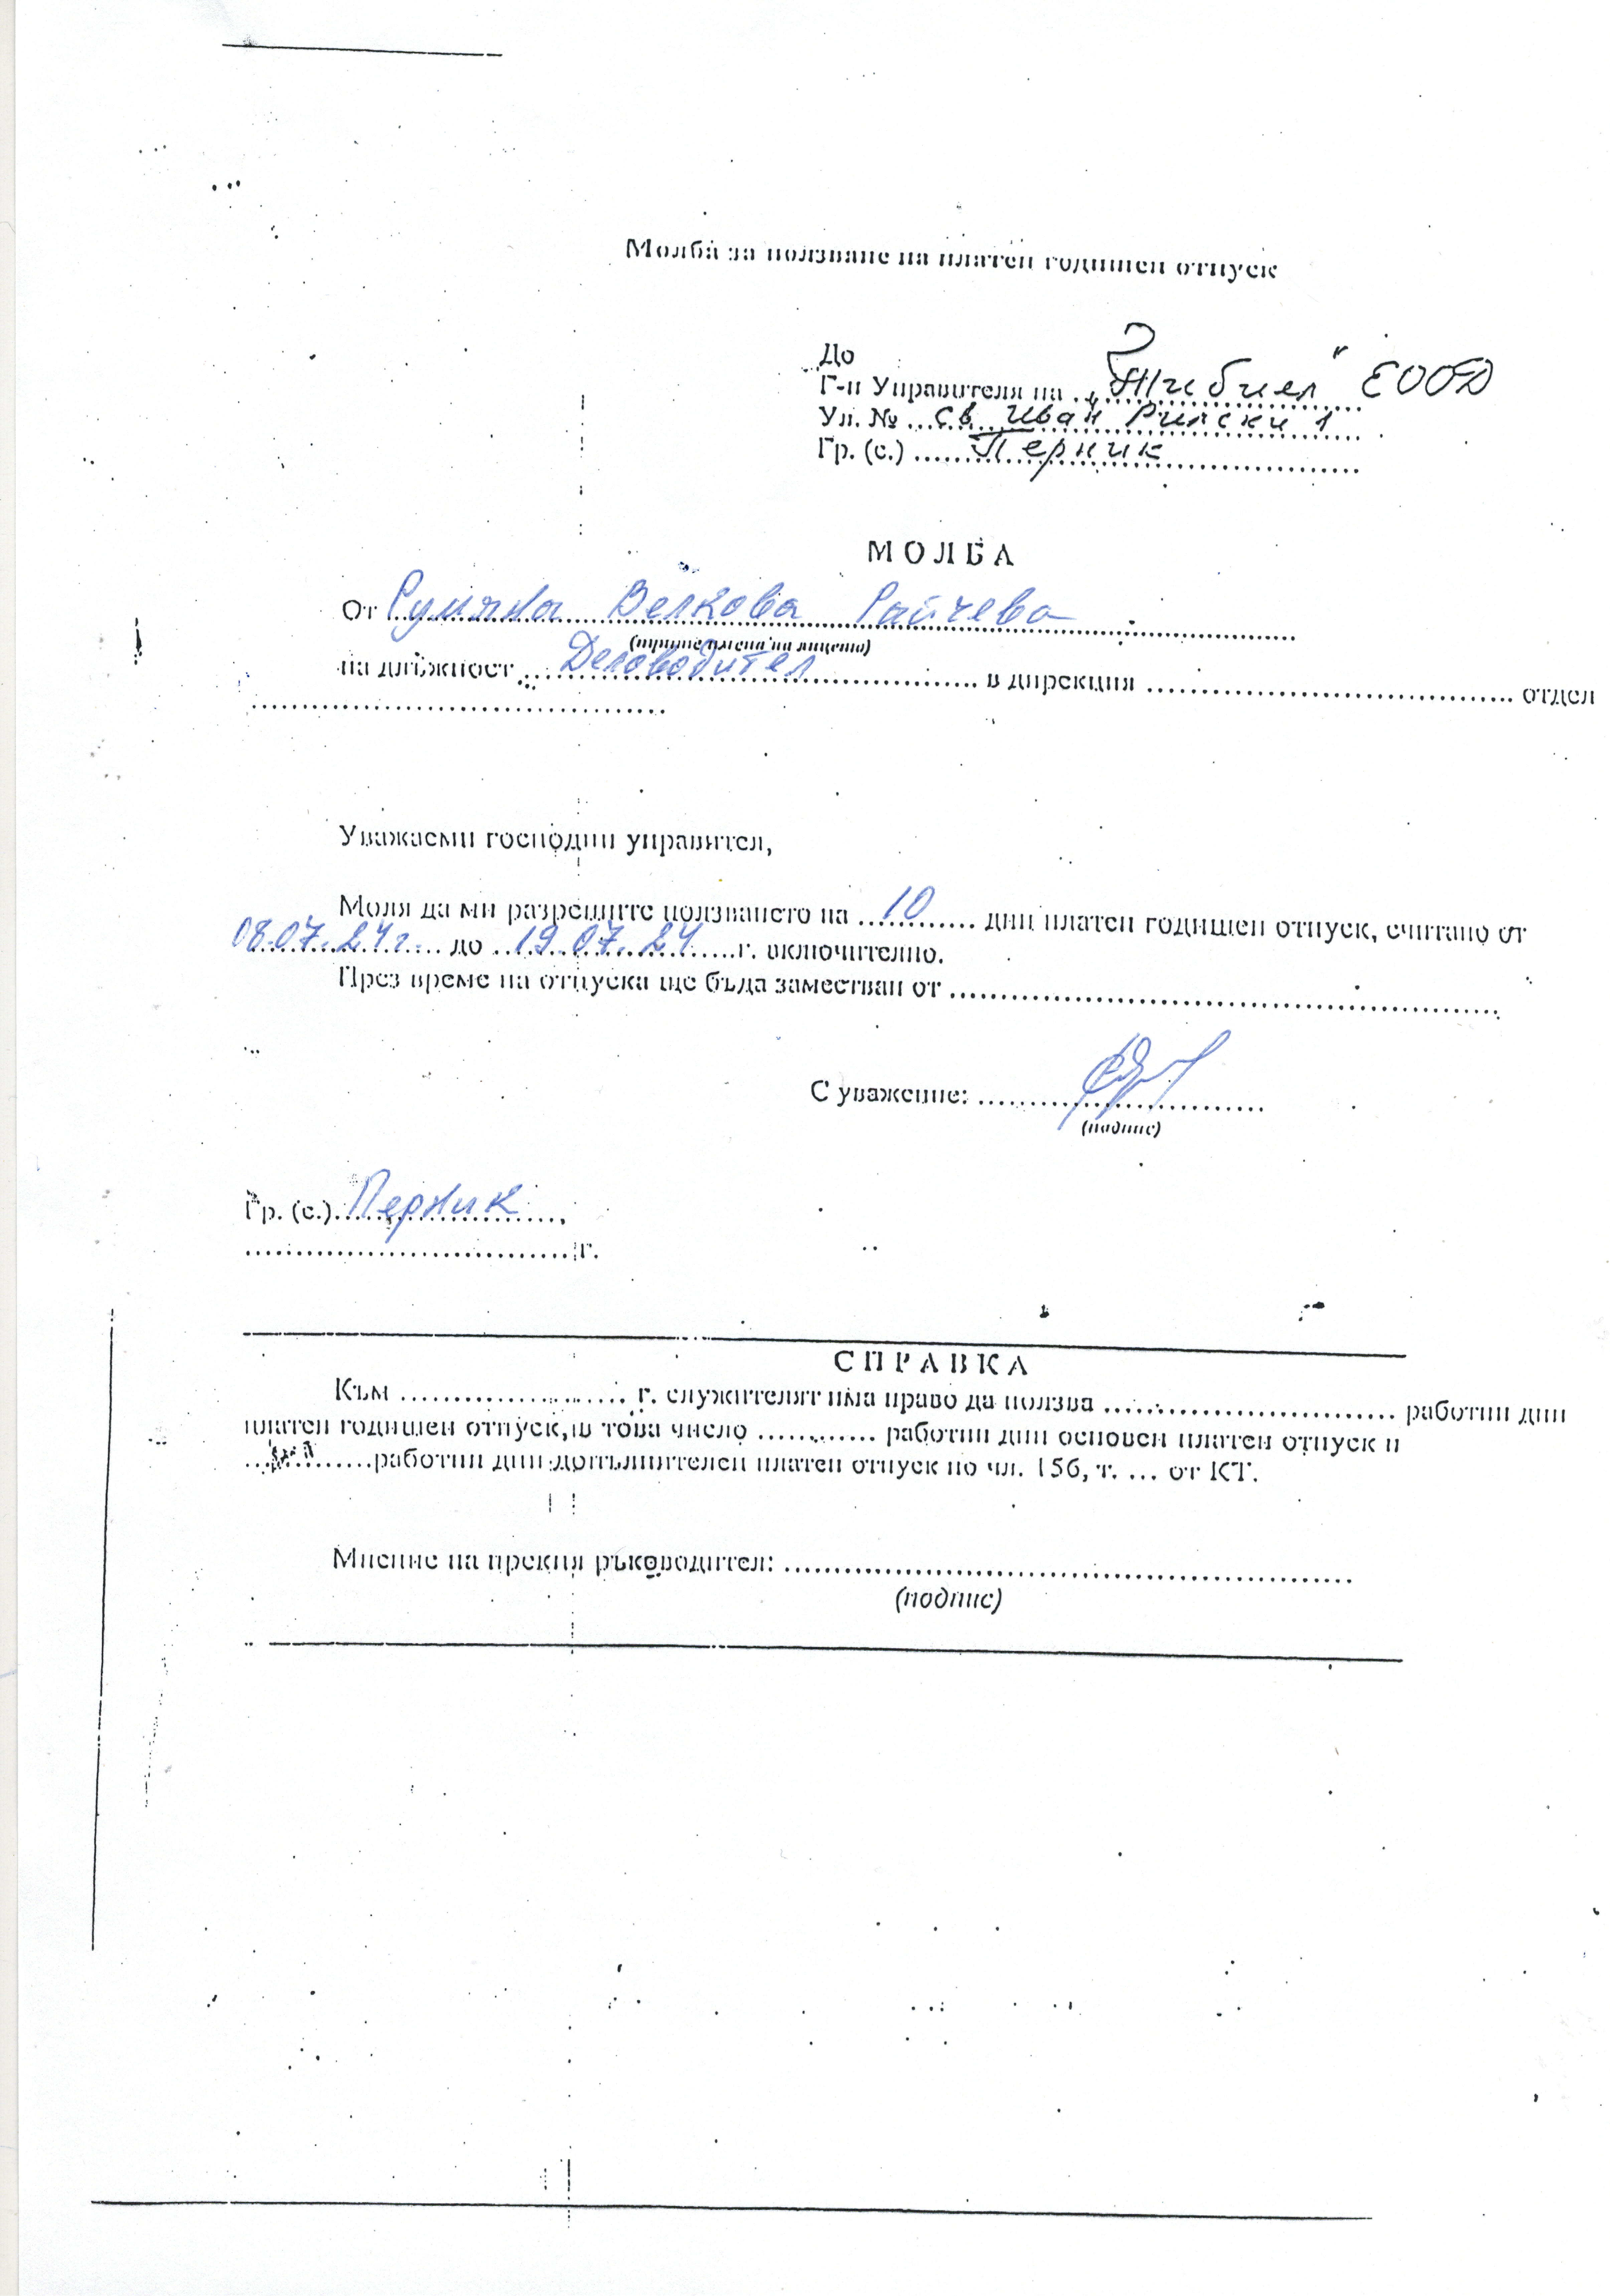 Молба за ползване на платен годишен отпуск
До
Г-н Управителя на „ ” ЕООД
Ул. № Св. Иван Рилски 1
Гр. (с.) Перник
МОЛБА
От Румяна Велкова Райчева
(трите имена на лицето)
на длъжност Деловодител в дирекция отдел
Уважаеми господин управител,
Моля да ми разрешите ползването на 10 дни платен годишен отпуск, считано от
08.07.24г. до 19.07.24 г. включително.
През време на отпуска ще бъда заместван от
С уважение:
(подпис)
Гр. (с.) Перник,
г.
СПРАВКА
Към г. служителят има право да ползва работни дни
платен годишен отпуск, в това число работни дни основен платен отпуск и
работни дни допълнителен платен отпуск по чл. 156, т. ... от КТ.
Мнение на прекия ръководител:
(подпис)